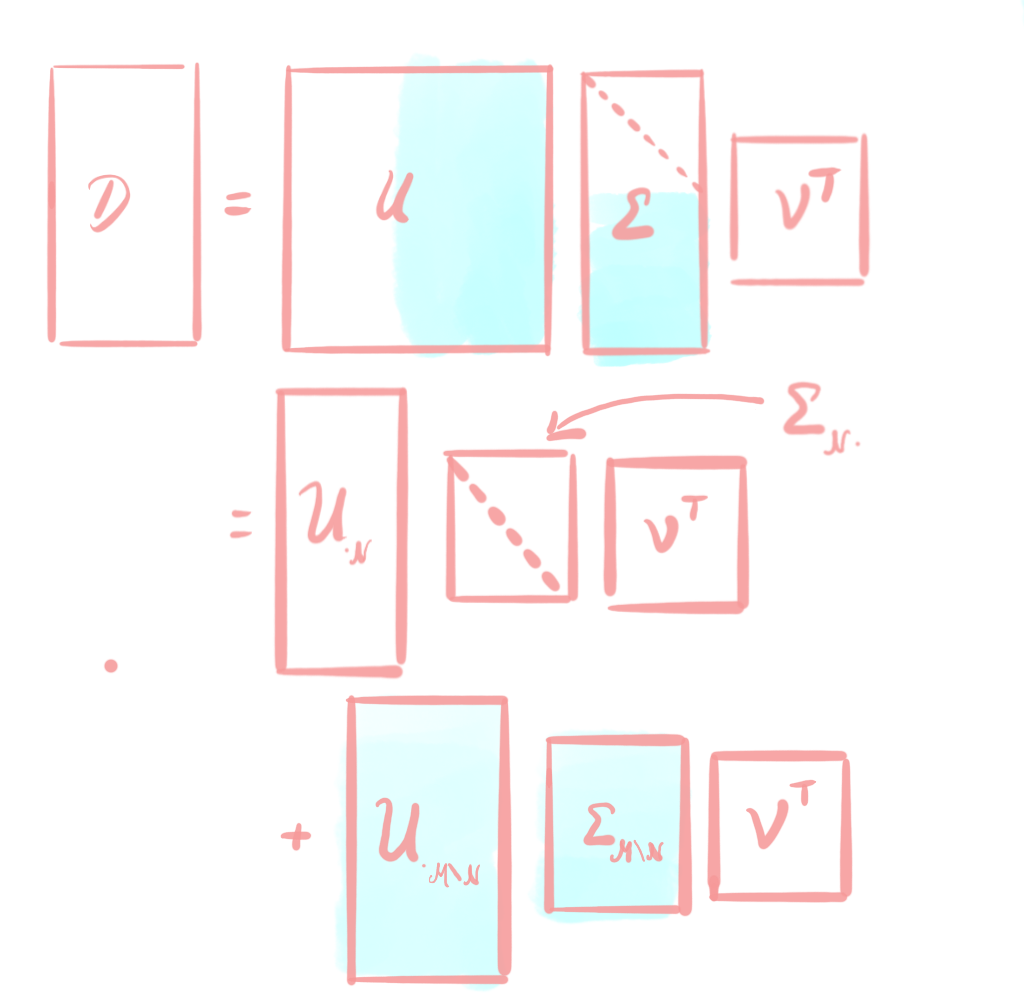 D = U Σ V^T
Σ_N.
= U_.N V^T
+ U_.M\N Σ_M\N V^T